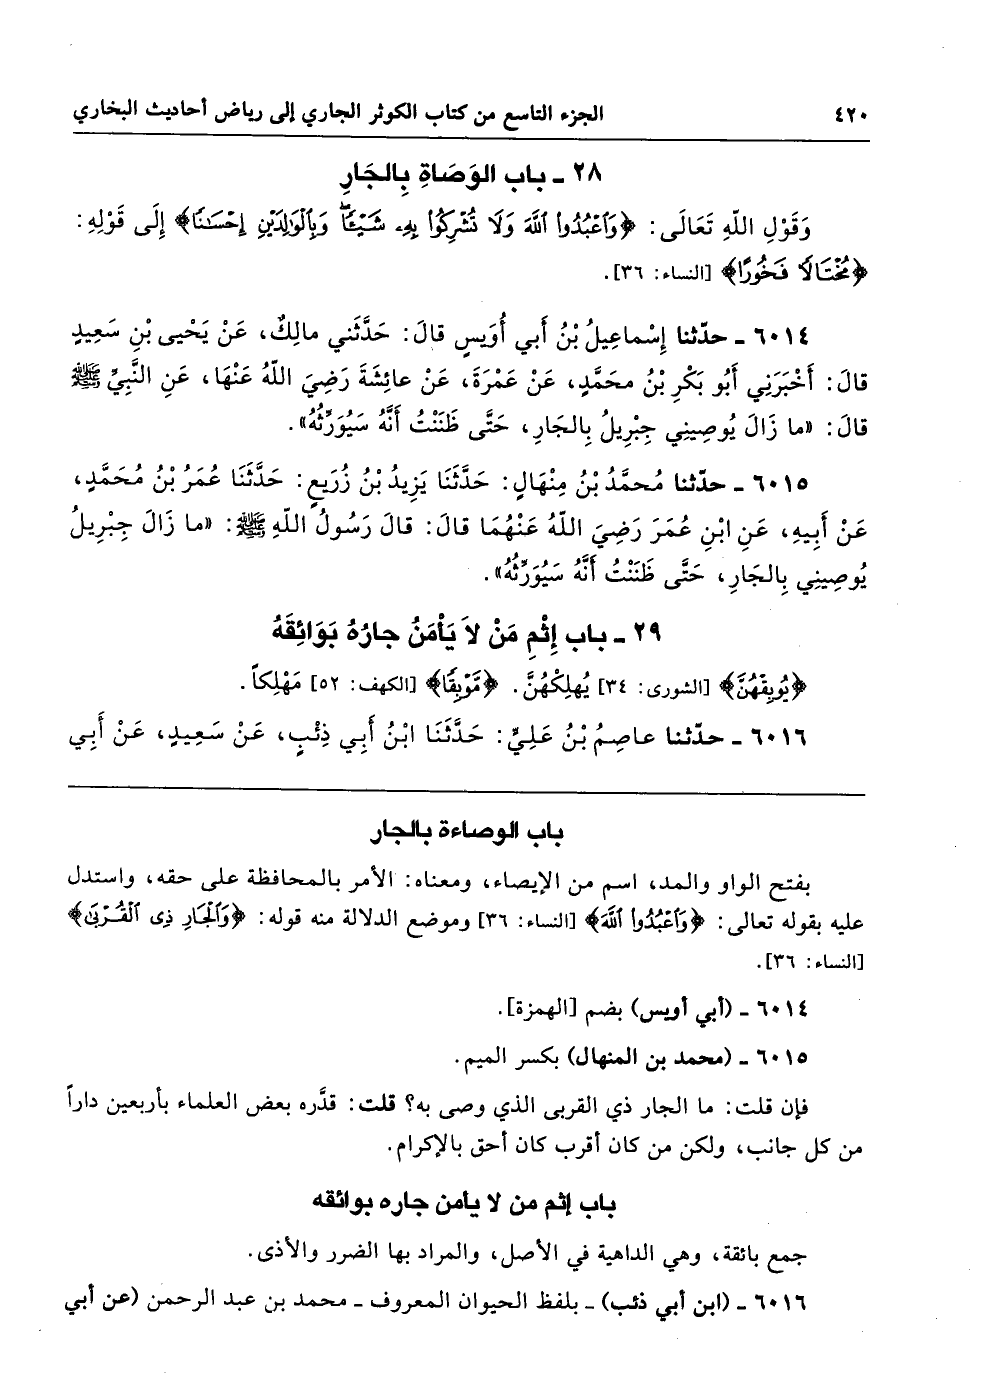 ٤٢٠ الجزء التاسع من كتاب الكوثر الجاري إلى رياض أحاديث البخاري
٢٨ ـ باب الوَصَاةِ بِالجَارِ
وَقَوْلِ اللّهِ تَعَالَى: ﴿وَٱعْبُدُوا۟ ٱللَّهَ وَلَا تُشْرِكُوا۟ بِهِۦ شَيْـًٔا ۖ وَبِٱلْوَٰلِدَيْنِ إِحْسَـٰنًا﴾ إِلَى قَوْلِهِ:
﴿مُخْتَالًا فَخُورًا﴾ [النساء: ٣٦].
٦٠١٤ ـ حدّثنا إِسْماعِيلُ بْنُ أَبي أُوَيسٍ قالَ: حَدَّثَني مالِكٌ، عَنْ يَحْيى بْنِ سَعِيدٍ
قالَ: أَخْبَرَنِي أَبُو بَكْرِ بْنُ محَمَّدٍ، عَنْ عَمْرَةَ، عَنْ عائِشَةَ رَضِيَ اللّهُ عَنْهَا، عَنِ النَّبِيِّ ﷺ
قالَ: «ما زَالَ يُوصِيني جِبْرِيلُ بِالجَارِ، حَتَّى ظَنَنْتُ أَنَّهُ سَيُوَرِّثُهُ».
٦٠١٥ ـ حدّثنا مُحمَّدُ بْنُ مِنْهَالٍ: حَدَّثَنَا يَزِيدُ بْنُ زُرَيعٍ: حَدَّثَنَا عُمَرُ بْنُ مُحَمَّدٍ،
عَنْ أَبِيهِ، عَنِ ابْنِ عُمَرَ رَضِيَ اللّهُ عَنْهُمَا قالَ: قالَ رَسُولُ اللّهِ ﷺ: «ما زَالَ جِبْرِيلُ
يُوصِينِي بِالجَارِ، حَتَّى ظَنَنْتُ أَنَّهُ سَيُوَرِّثُهُ».
٢٩ ـ باب إِثْمِ مَنْ لاَ يَأْمَنُ جارُهُ بَوَائِقَهُ
﴿يُوبِقْهُنَّ﴾ [الشورى: ٣٤] يُهلِكْهُنَّ. ﴿مَّوْبِقًا﴾ [الكهف: ٥٢] مَهْلِكاً.
٦٠١٦ ـ حدّثنا عاصِمُ بْنُ عَلِيٍّ: حَدَّثَنَا ابْنُ أَبِي ذِئْبٍ، عَنْ سَعِيدٍ، عَنْ أَبِي
باب الوصاءة بالجار
بفتح الواو والمد، اسم من الإيصاء، ومعناه: الأمر بالمحافظة على حقه، واستدل
عليه بقوله تعالى: ﴿وَٱعْبُدُوا۟ ٱللَّهَ﴾ [النساء: ٣٦] وموضع الدلالة منه قوله: ﴿وَٱلْجَارِ ذِى ٱلْقُرْبَىٰ﴾
[النساء: ٣٦].
٦٠١٤ ـ (أبي أويس) بضم [الهمزة].
٦٠١٥ ـ (محمد بن المنهال) بكسر الميم.
فإن قلت: ما الجار ذي القربى الذي وصى به؟ قلت: قدَّره بعض العلماء بأربعين داراً
من كل جانب، ولكن من كان أقرب كان أحق بالإكرام.
باب إثم من لا يأمن جاره بوائقه
جمع بائقة، وهي الداهية في الأصل، والمراد بها الضرر والأذى.
٦٠١٦ ـ (ابن أبي ذئب) ـ بلفظ الحيوان المعروف ـ محمد بن عبد الرحمن (عن أبي